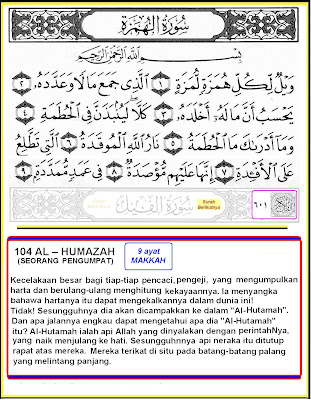 سُورَةُ الْهُمَزَةِ
بِسْمِ اللَّهِ الرَّحْمَٰنِ الرَّحِيمِ
وَيْلٌ لِّكُلِّ هُمَزَةٍ لُّمَزَةٍ ١ الَّذِي جَمَعَ مَالًا وَعَدَّدَهُ ٢
يَحْسَبُ أَنَّ مَالَهُ أَخْلَدَهُ ٣ كَلَّا لَيُنبَذَنَّ فِي الْحُطَمَةِ ٤
وَمَا أَدْرَاكَ مَا الْحُطَمَةُ ٥ نَارُ اللَّهِ الْمُوقَدَةُ ٦ الَّتِي تَطَّلِعُ
عَلَى الْأَفْئِدَةِ ٧ إِنَّهَا عَلَيْهِم مُّؤْصَدَةٌ ٨ فِي عَمَدٍ مُّمَدَّدَةٍ ٩
سُورَةُ الْفِيلِ
Surah
Berikutnya
٦٠١
104 AL – HUMAZAH
(SEORANG PENGUMPAT)
9 ayat
MAKKAH
Kecelakaan besar bagi tiap-tiap pencaci, pengeji, yang mengumpulkan
harta dan berulang-ulang menghitung kekayaannya. Ia menyangka
bahawa hartanya itu dapat mengekalkannya dalam dunia ini!
Tidak! Sesungguhnya dia akan dicampakkan ke dalam "Al-Hutamah".
Dan apa jalannya engkau dapat mengetahui apa dia "Al-Hutamah"
itu? Al-Hutamah ialah api Allah yang dinyalakan dengan perintahNya,
yang naik menjulang ke hati. Sesungguhnnya api neraka itu ditutup
rapat atas mereka. Mereka terikat di situ pada batang-batang palang
yang melintang panjang.